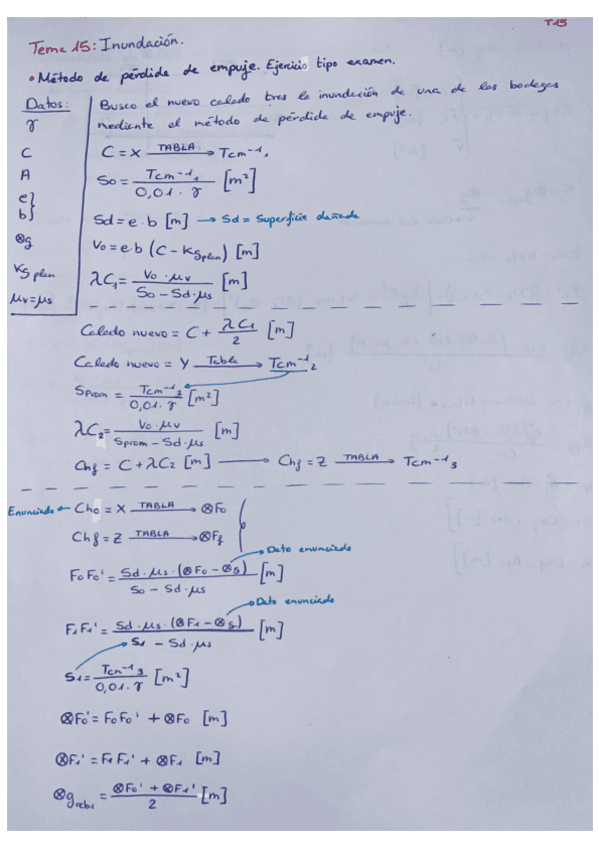 T.15
Tema 15: Inundación.
• Método de pérdida de empuje. Ejercicio tipo examen.
Datos:
γ
C
A
e}
b}
⊗g
KG plan
μv=μs
Busco el nuevo calado tras la inundación de una de las bodegas
mediante el método de pérdida de empuje.
C = X TABLA → Tcm⁻¹₁
S₀ = Tcm⁻¹₁ / 0,01 · γ [m²]
Sd = e · b [m] → Sd = Superficie dañada
V₀ = e·b (C - KGplan) [m]
λC₁ = V₀ · μv / S₀ - Sd·μs [m]
Calado nuevo = C + λC₁ / 2 [m]
Calado nuevo = Y Tabla → Tcm⁻¹₂
Sprom = Tcm⁻¹₂ / 0,01 · γ [m²]
λC₂ = V₀ · μv / Sprom - Sd·μs [m]
Chf = C + λC₂ [m] → Chf = Z TABLA → Tcm⁻¹₃
Enunciado ← Ch₀ = X TABLA → ⊗F₀
Chf = Z TABLA → ⊗Ff
Dato enunciado
F₀F₀' = Sd · μs · (⊗F₀ - ⊗g) / S₀ - Sd·μs [m]
Dato enunciado
F₁F₁' = Sd · μs · (⊗F₁ - ⊗g) / S₁ - Sd·μs [m]
S₁ = Tcm⁻¹₃ / 0,01 · γ [m²]
⊗F₀' = F₀F₀' + ⊗F₀ [m]
⊗F₁' = F₁F₁' + ⊗F₁ [m]
⊗g = ⊗F₀' + ⊗F₁' / 2 [m]